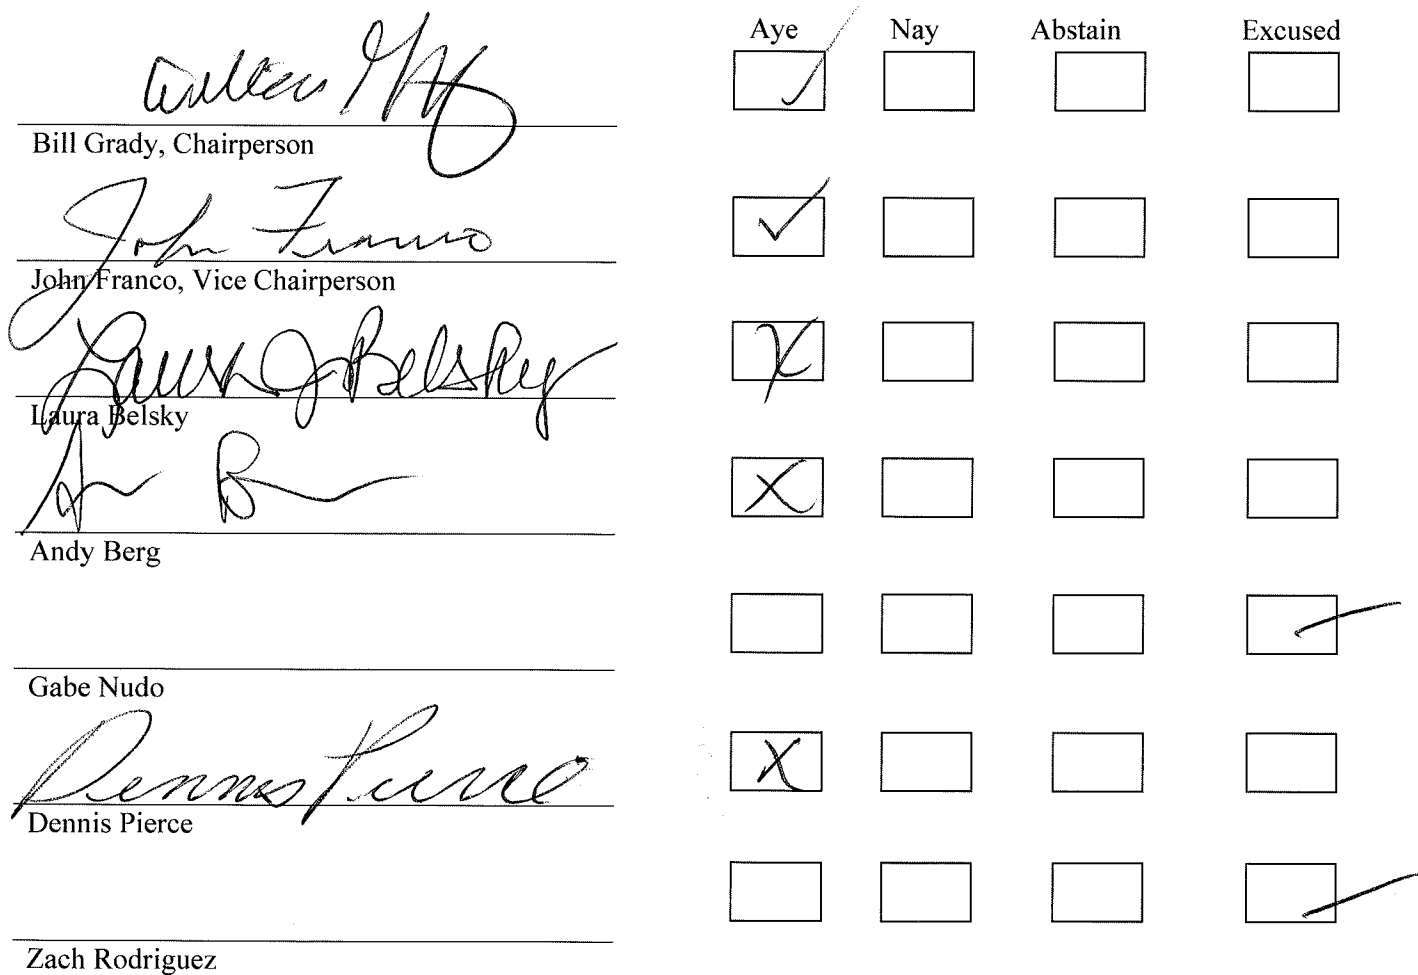 Aye Nay Abstain Excused
Bill Grady, Chairperson
John Franco
John Franco, Vice Chairperson
Laura J Belsky
Laura Belsky
Andy Berg
Gabe Nudo
Dennis Pierce
Dennis Pierce
Zach Rodriguez